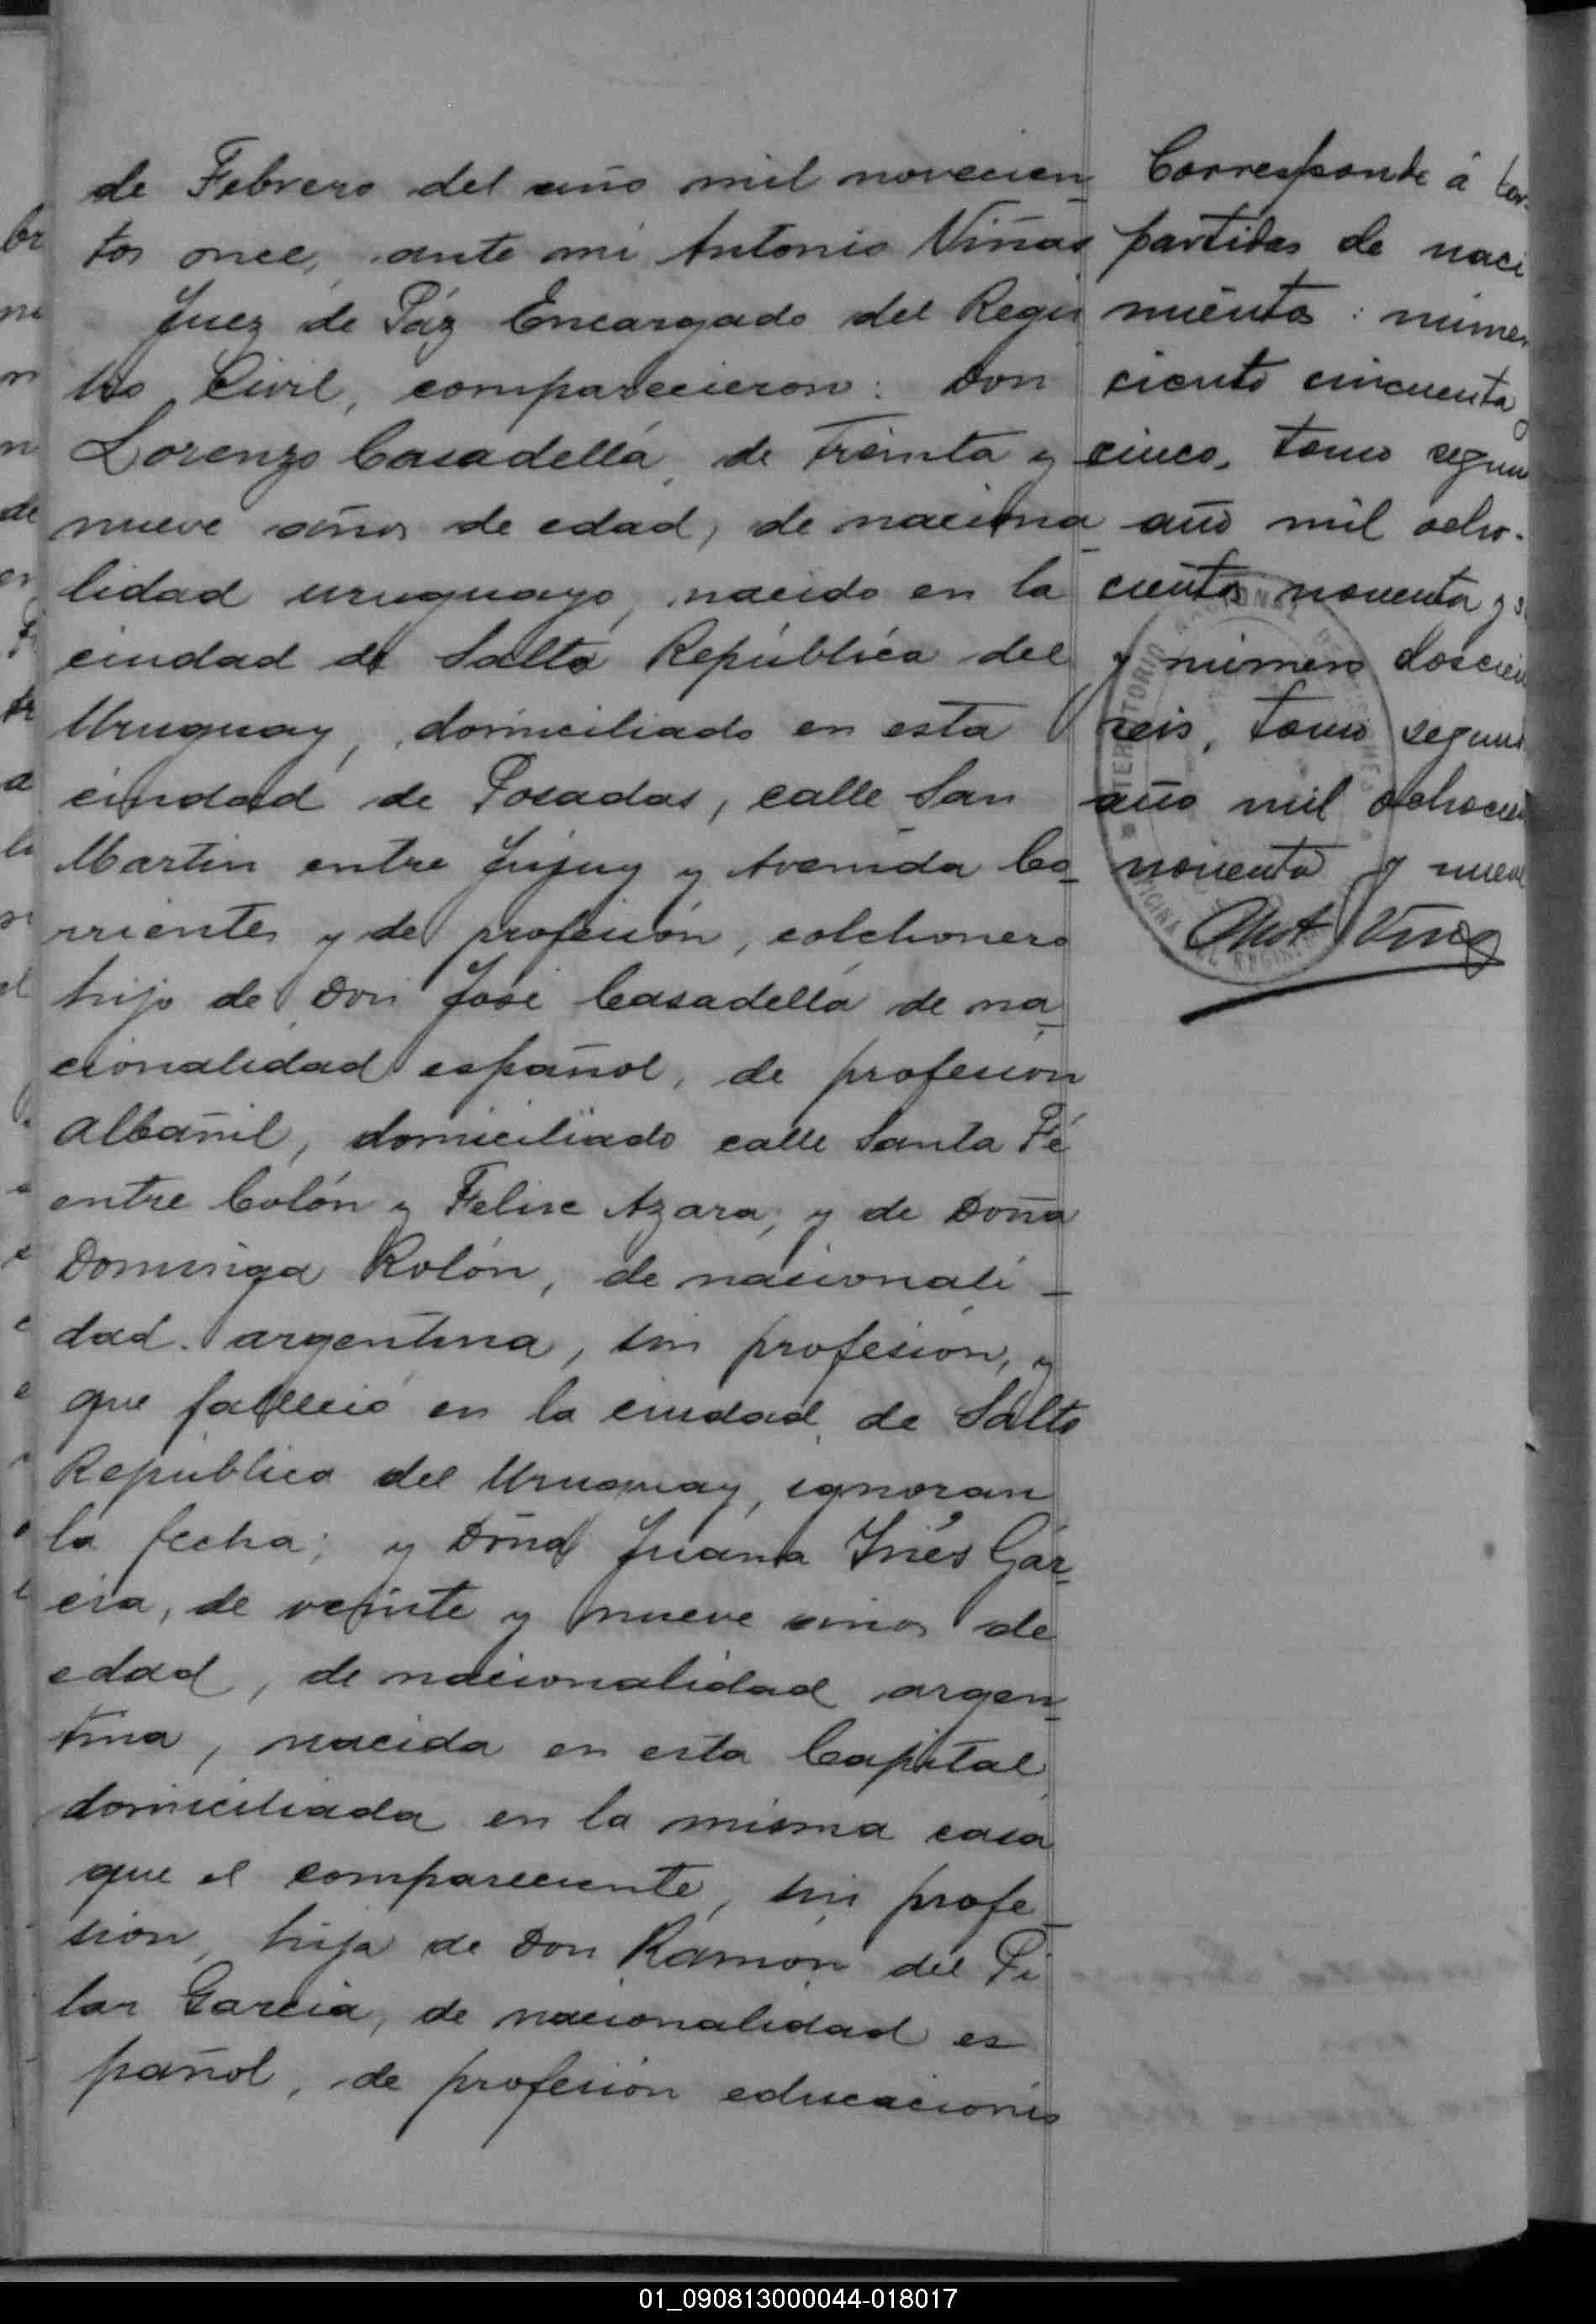 de Febrero del año mil novecien
tos once, ante mi Antonio Viñas
Juez de Páz Encargado del Regis
tro Civil, comparecieron: Don
Lorenzo Casadellá, de treinta y
nueve años de edad, de naciona
lidad uruguayo, nacido en la
ciudad de Salto República del
Uruguay, domiciliado en esta
ciudad de Posadas, calle San
Martin entre Jujuy y Avenida Co
rrientes y de profesión, colchonero
hijo de Don José Casadellá de na
cionalidad español, de profesión
albañil, domiciliado calle Santa Fé
entre Colón y Felise Azara; y de Doña
Dominga Rolón, de nacionali
dad argentina, sin profesion, y
que falleció en la ciudad de Salto
República del Uruguay, ignoran
la fecha; y Dña Juana Inés Gar
cia, de veinte y nueve años de
edad, de nacionalidad argen
tina, nacida en esta Capital,
domiciliada en la misma casa
que el compareciente, sin profe
sion, hija de Don Ramón del Pi
lar Garcia, de nacionalidad es
pañol, de profesión educacionis
Corresponde á
partidas de naci
mientos: númer
ciento cincuenta y
cinco, tomo segun
año mil ocho-
cientos noventa y
y número doscien
seis, tomo segund
año mil ochocien
noventa y nueve
Ant Viñas
01_090813000044-018017